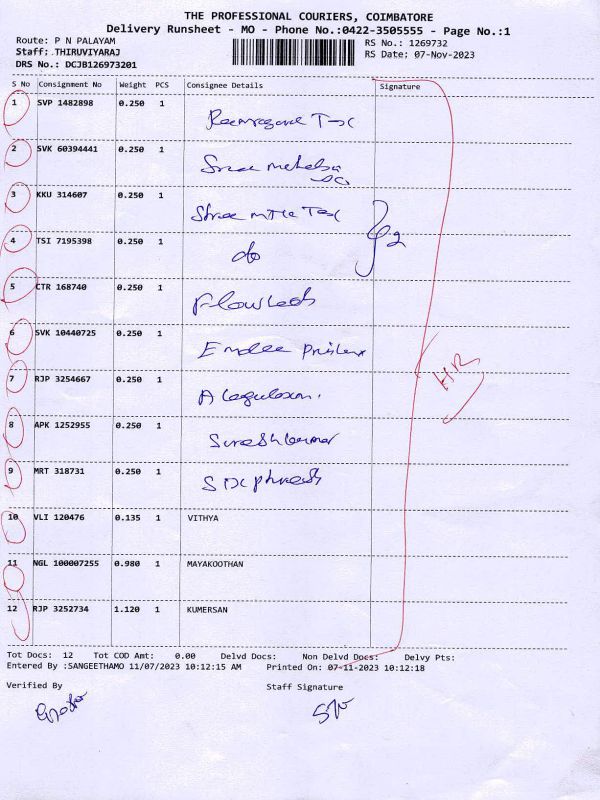 THE PROFESSIONAL COURIERS, COIMBATORE
Delivery Runsheet - MO - Phone No.:0422-3505555 - Page No.:1
Route: P N PALAYAM
RS No.: 1269732
Staff: THIRUVIYARAJ
RS Date: 07-Nov-2023
DRS No.: DCJB126973201
S No Consignment No Weight PCS Consignee Details Signature
1 SVP 1482898 0.250 1
2 SVK 60394441 0.250 1
3 KKU 314607 0.250 1
4 TSI 7195398 0.250 1 do
5 CTR 168740 0.250 1
6 SVK 10440725 0.250 1
7 RJP 3254667 0.250 1
8 APK 1252955 0.250 1 Sureshkumar
9 MRT 318731 0.250 1
10 VLI 120476 0.135 1 VITHYA
11 NGL 100007255 0.980 1 MAYAKOOTHAN
12 RJP 3252734 1.120 1 KUMERSAN
Tot Docs: 12 Tot COD Amt: 0.00 Delvd Docs: Non Delvd Docs: Delvy Pts:
Entered By :SANGEETHAMO 11/07/2023 10:12:15 AM Printed On: 07-11-2023 10:12:18
Verified By Staff Signature